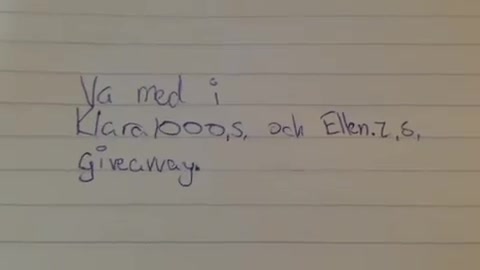 Va med i
Klara.1000,s, och Ellen.z,s,
giveaway.